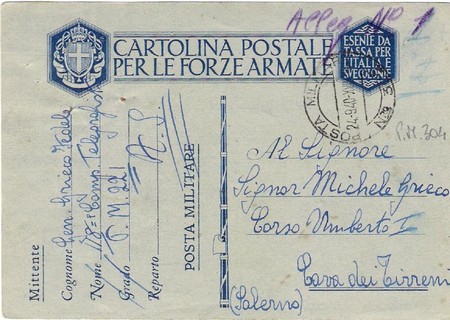 Alleg Nº 1
CARTOLINA POSTALE
PER LE FORZE ARMATE
ESENTE DA
TASSA PER
L'ITALIA E
SVE COLONIE
POSTA MILITARE
24-9-40
Nº 3
P.M. 304
Al Signore
Signor Michele Grieco
Corso Umberto I
Cava dei Tirreni
(Salerno)
POSTA MILITARE
Mittente
Cognome Gen. Grieco
Nome 118ª Comp. Telegrafisti
Grado P.M. 22 1
Reparto A. S.